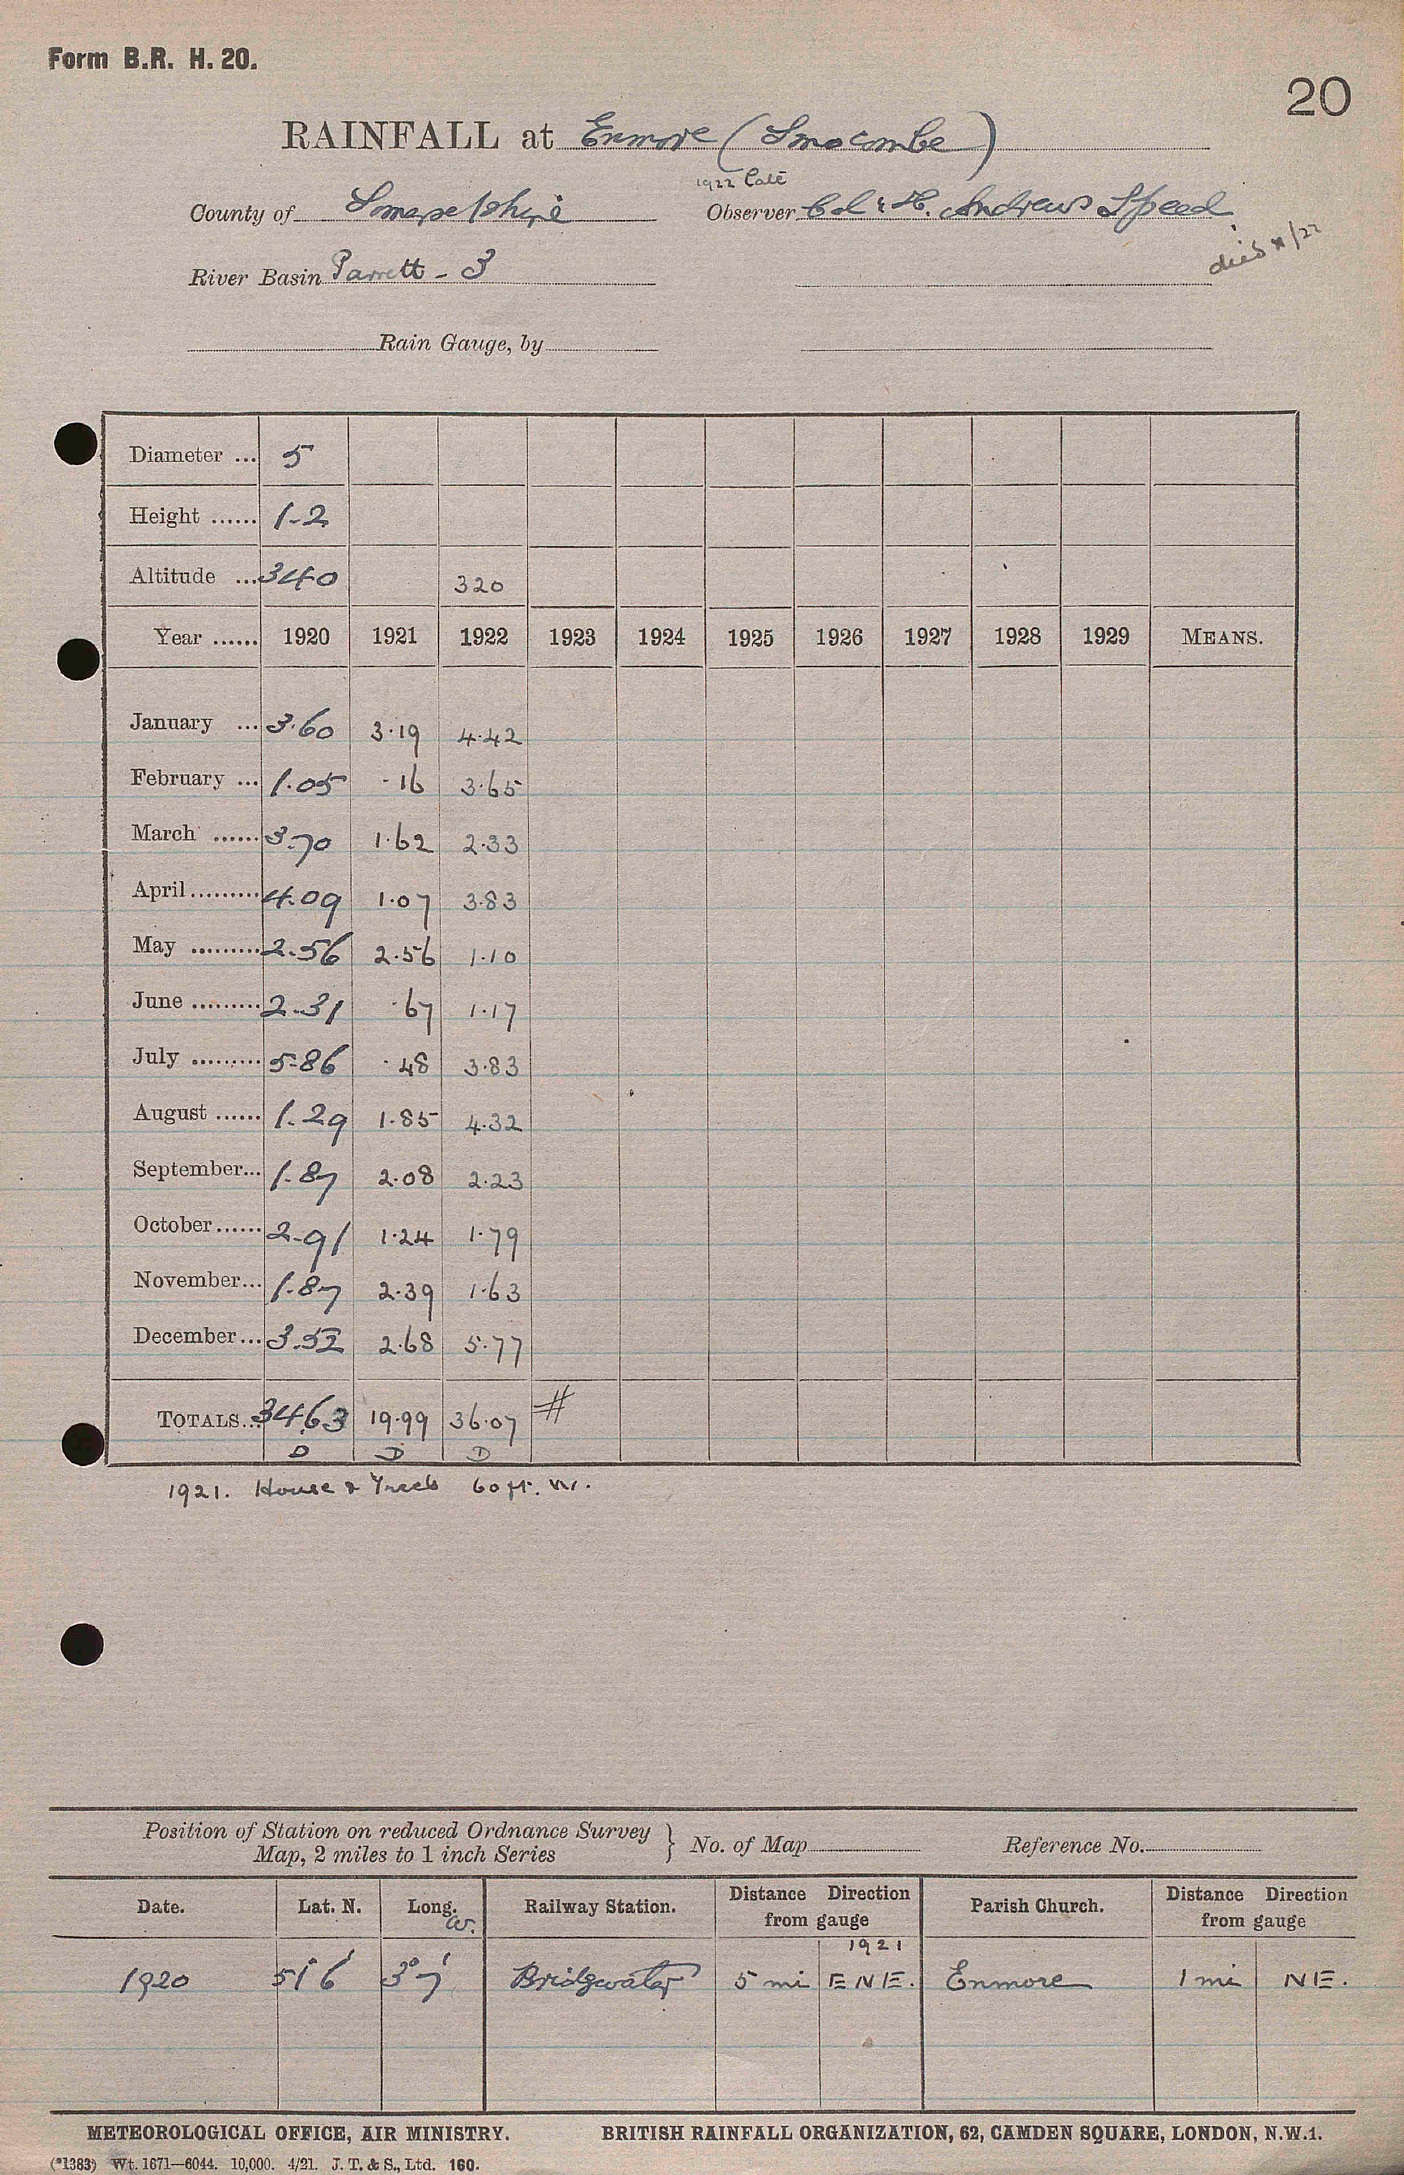 Form B.R. H. 20.
20
RAINFALL at Enmore (Smocombe)
1922 Late
County of Somersetshire Observer Col. H. Andrews Speed
died /22
River Basin Parrett - 3
Rain Gauge, by
Diameter ... 5
Height ...... 1-2
Altitude ... 340 320
Year ...... 1920 1921 1922 1923 1924 1925 1926 1927 1928 1929 MEANS.
January ... 3.60 3.19 4.42
February ... 1.05 .16 3.65
March ...... 3.70 1.62 2.33
April ......... 4.09 1.07 3.83
May ......... 2.56 2.56 1.10
June ......... 2.31 .67 1.17
July ......... 5.86 .48 3.83
August ...... 1.29 1.85 4.32
September... 1.87 2.08 2.23
October ...... 2.91 1.24 1.79
November... 1.87 2.39 1.63
December... 3.52 2.68 5.77
TOTALS... 34.63 19.99 36.07 #
D D D
1921. House & Trees 60 ft. W.
Position of Station on reduced Ordnance Survey Map, 2 miles to 1 inch Series } No. of Map Reference No.
Date. Lat. N. Long. W. Railway Station. Distance Direction from gauge Parish Church. Distance Direction from gauge
1921
1920 51° 6' 3° 7' Bridgwater 5 mi E N E. Enmore 1 mi N E.
METEOROLOGICAL OFFICE, AIR MINISTRY. BRITISH RAINFALL ORGANIZATION, 62, CAMDEN SQUARE, LONDON, N.W.1.
(*1383) Wt. 1671—6044. 10,000. 4/21. J. T. & S., Ltd. 160.